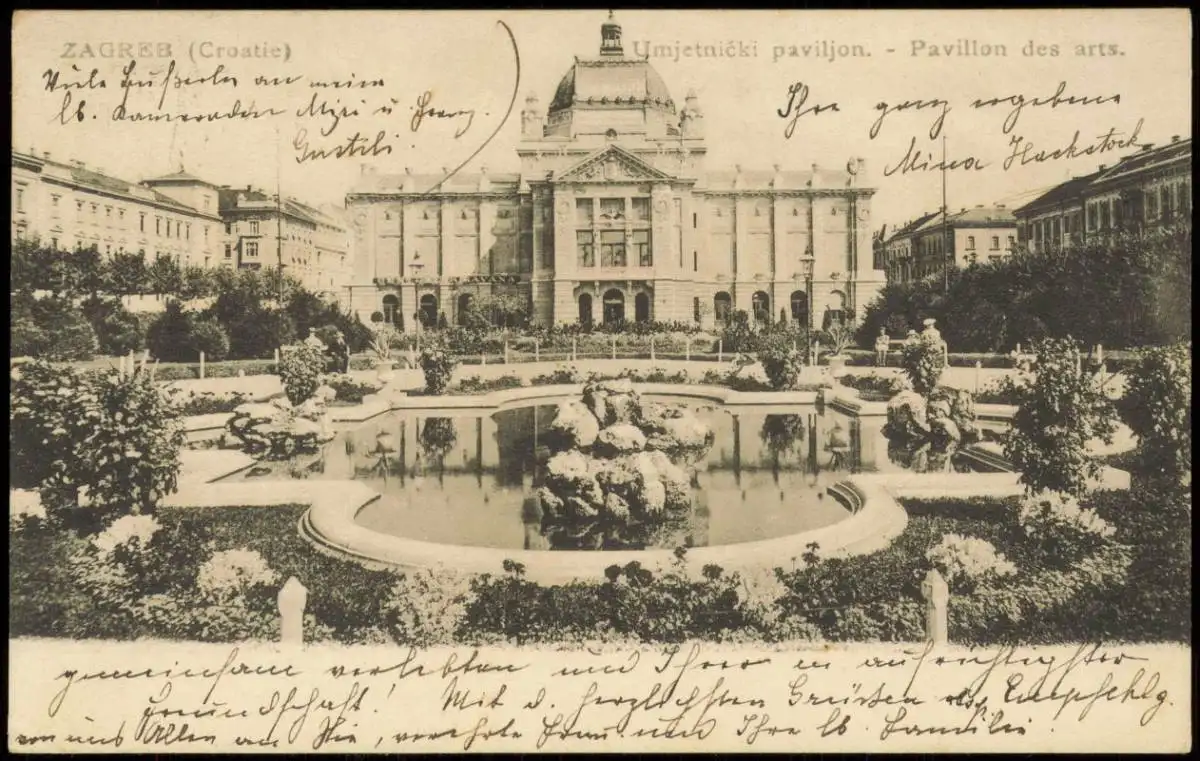 ZAGREB (Croatie)
Umjetnički paviljon. - Pavillon des arts.
Viele Bußerln an meine
lb. Kameraden Mizi u. Herrz.
Gustili.
Ihre ganz ergebene
Mina Hackstock
gemeinsam verlebten und Ihrer in aufrichtigster
Freundschaft! Mit d. herzlichsten Grüßen u. Empfehlg.
von uns Allen an Sie, verehrte Frau und Ihre lb. Familie.